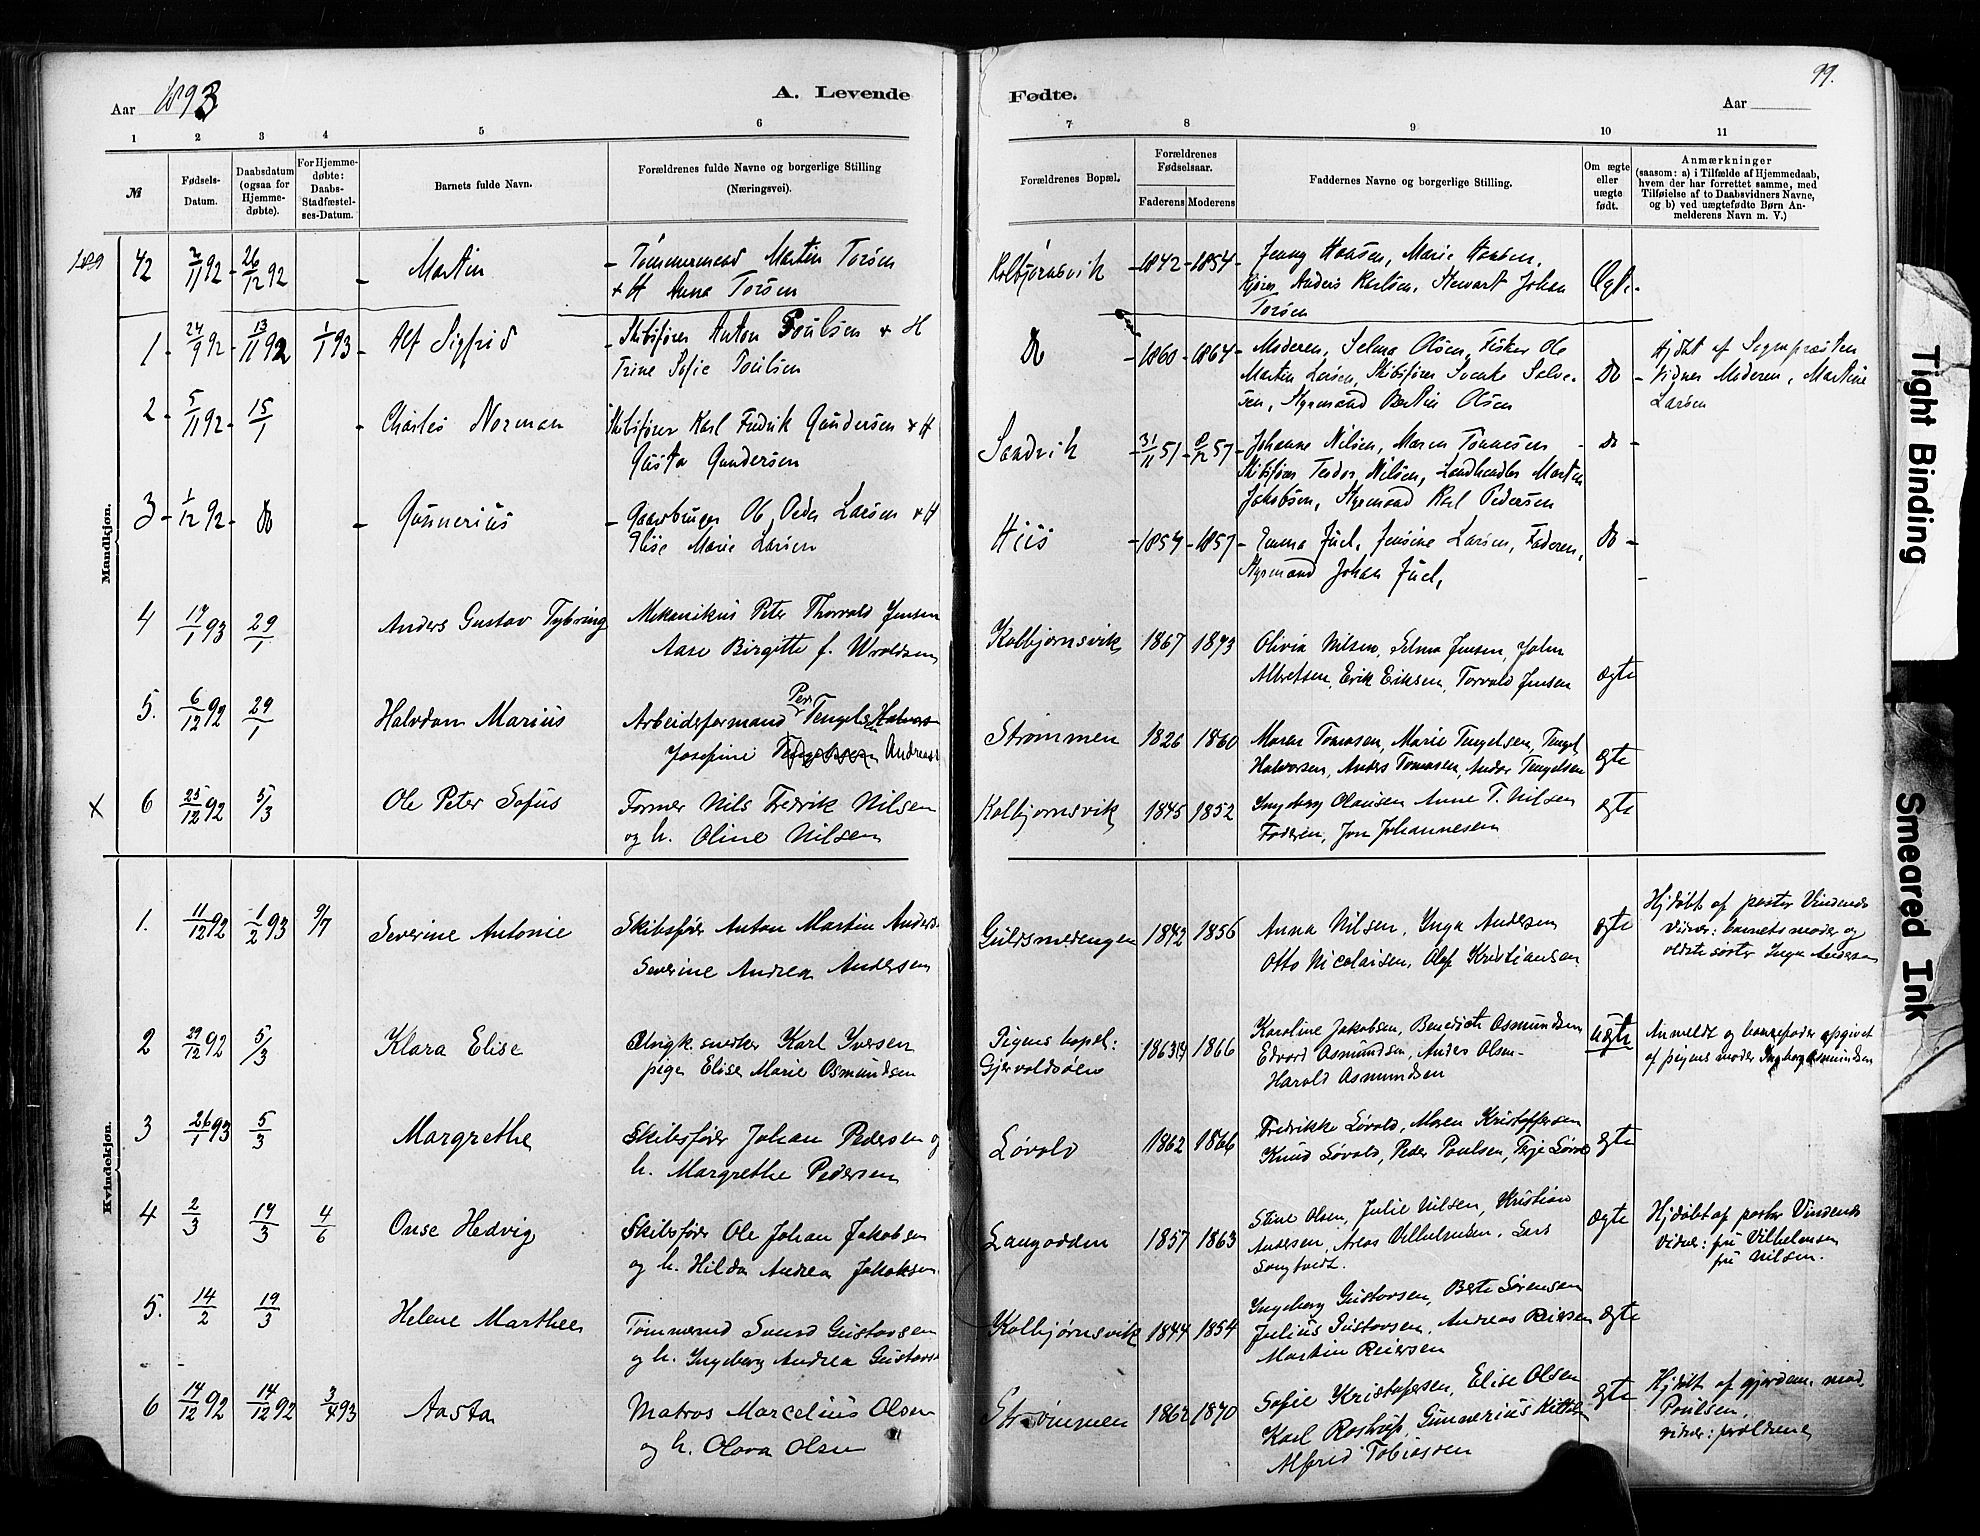 Aar 1893
A. Levende
1 2 3 4 5 6
№
Fødsels-Datum.
Daabsdatum (ogsaa for Hjemme-døbte).
For Hjemme-døbte: Daabs-Stadfæstel-ses-Datum.
Barnets fulde Navn.
Forældrenes fulde Navne og borgerlige Stilling (Næringsvei).
Mandkjøn.
42 2/11 92 - 26/12 92 - Martin - Tømmermand Martin Torsen
+ H Anna Torsen
1 - 24/9 92 - 13/11 92 1/1 93 - Alf Sigfrid - Skibsfører Anton Poulsen + H
Trine Sofie Poulsen
2 - 5/11 92 - 15/1 - Charles Norman Skibsfører Karl Fredrik Gundersen + H
Gusta Gundersen
3 - 1/12 92 - Do - Gunnerius - Gaardbruger Ole Peder Larsen + H
Elise Marie Larsen
4 17/1 93 29/1 Anders Gustav Tybring Mekanikus Peter Thorvald Jensen
Aase Birgitte f. Wroldsen
5. 6/12 92 29/1 Halvdan Marius Arbeidsformand Peder Tengels Halvors
Josefine Andreas
x 6 25/12 92 5/3 Ole Peter Sofus Former Nils Fredrik Nilsen
og h. Oline Nilsen
Kvindekjøn.
1. 11/12 92 1/2 93 9/7 Severine Antonie Skibsfører Anton Martin Anders
Severine Andrea Andersen
2 29/12 92 5/3 Klara Elise snedker Karl Iversen
pige Elise Marie Osmundsen
3 26/1 93 5/3 Margrethe Skibsfører Johan Pedersen og
h. Margrethe Pedersen
4 2/3 19/3 4/6 Onse Hedvig Skibsfører Ole Johan Jakobsen
og h. Hilda Andrea Jakobsen
5. 14/2 19/3 Helene Marthee Tømmermd Svend Gustavsen
og h. Ingeborg Andrea Gustavs
6 14/12 92 14/12 92 3/4 93 Aasta Matros Marcelius Olsen
og h. Olava Olsen
99.
Fødte.
Aar
7 8 9 10 11
Forældrenes Bopæl.
Forældrenes Fødselsaar.
Faderens Moderens
Faddernes Navne og borgerlige Stilling.
Om ægte eller uægte født.
Anmærkninger
(saasom: a) i Tilfælde af Hjemmedaab,
hvem der har forrettet samme, med
Tilføielse af to Daabsvidners Navne,
og b) ved uægtefødte Børn An-
melderens Navn m. V.)
Kolbjørnsvik - 1842 - 1854 - Jenny Hansen, Marie Hansen,
Anders Karlsen, Stewart Johan Ægte -
Torsen
Do - 1860 - 1864 - Moderen, Selma Olsen, Fisker Ole
Martin Larsen, Skibsfører Svenke Salve- Do
sen, Styrmand Bertin Olsen
Hjdbt af Sognepræsten
- Vidner Moderen, Martine
Larsen
Sandvik - 31/11 51 - 57 - Johanne Nilsen, Maren Tønnesen - Do -
Skibsfører Teodor Nilsen, Landhandler Morten
Jakobsen, Styrmand Karl Pedersen
Hiis - 1854 - 1857 - Emma Juel, Jensine Larsen, Faderen, Do -
Styrmand Johan Juel,
Kolbjørnsvik 1867 1873 Olivia Nilsen, Selma Jensen, John
Albretsen, Erik Eriksen, Torvald Jensen ægte
Strømmen 1826 1860 Maren Tomasen, Marie Tengelsen, Tengel
Halvorsen, Anders Tomasen, Andor Tengelsen ægte
Kolbjørnsvik 1845 1852 Ingeborg Olausen Anne T. Nilsen ægte
Faderen, Jon Johannesen
Guldsmedengen 1842 1856 Anna Nilsen, Inga Andersen ægte
Otto Nicolaisen, Olaf Kristiansen
Hjdøbt af pastor Vindenes
Vidner: barnets moder og
ældste søster Inga Andersen
Pigens bopel:
Gjervoldsøen 1863 1866 Karoline Jakobsen, Benedicte Osmundsen
Edvard Osmundsen, Anders Olsen
Harald Osmundsen uægte
Anmeldt og barnefader opgivet
af pigens moder Ingeborg Osmundsen
Løvold 1862 1866 Fredrikke Løvold, Maren Kristoffersen
Knud Løvold, Peder Poulsen, Terje Løvold ægte
Langodden 1857 1863 Stine Olsen, Julie Nilsen, Kristian
Andersen, Areas Vilhelmsen, Lars
Songtvedt. ægte
Hjdøbt af pastor Vindenes
Vidner: fru Vilhelmsen
fru Nilsen.
Kolbjørnsvik 1844 1854 Ingeborg Gustavsen, Berte Sørensen
Julius Gustavsen, Andreas Reiersen ægte
Martin Reiersen
Strømmen 1862 1870 Sofie Kristofersen, Elise Olsen
Karl Rostrup, Gunnerius
Alfred Tobiassen ægte
Hjdøbt af gjordem. mad.
Poulsen,
vidner: forældrene
Tight Binding
Smeared Ink